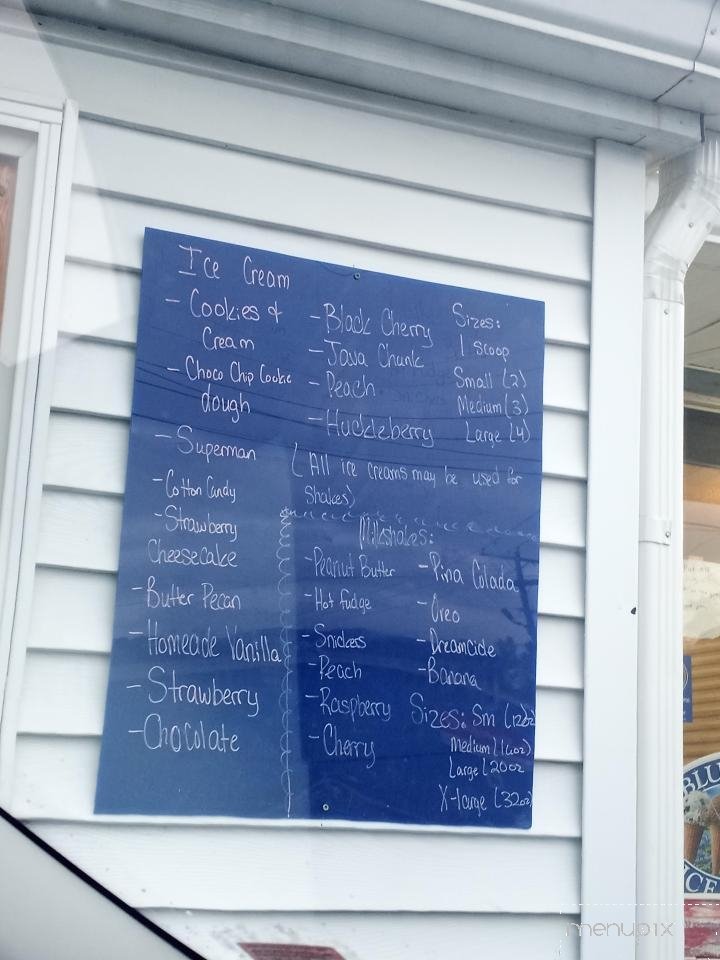 Ice Cream
- Cookies &
Cream
- Choco Chip Cookie
dough
- Superman
- Cotton Candy
- Strawberry
Cheesecake
- Butter Pecan
- Homeade Vanilla
- Strawberry
- Chocolate
- Black Cherry
- Java Chunk
- Peach
- Huckleberry
Sizes:
1 scoop
Small (2)
Medium (3)
Large (4)
( All ice creams may be used for
Shakes)
Milkshakes:
- Peanut Butter
- Hot fudge
- Snickers
- Peach
- Raspberry
- Cherry
- Pina Colada
- Oreo
- Dreamcicle
- Banana
Sizes: Sm (12oz)
Medium (16oz)
Large (20oz
X-large (32oz)
BLU
ICE
menupix